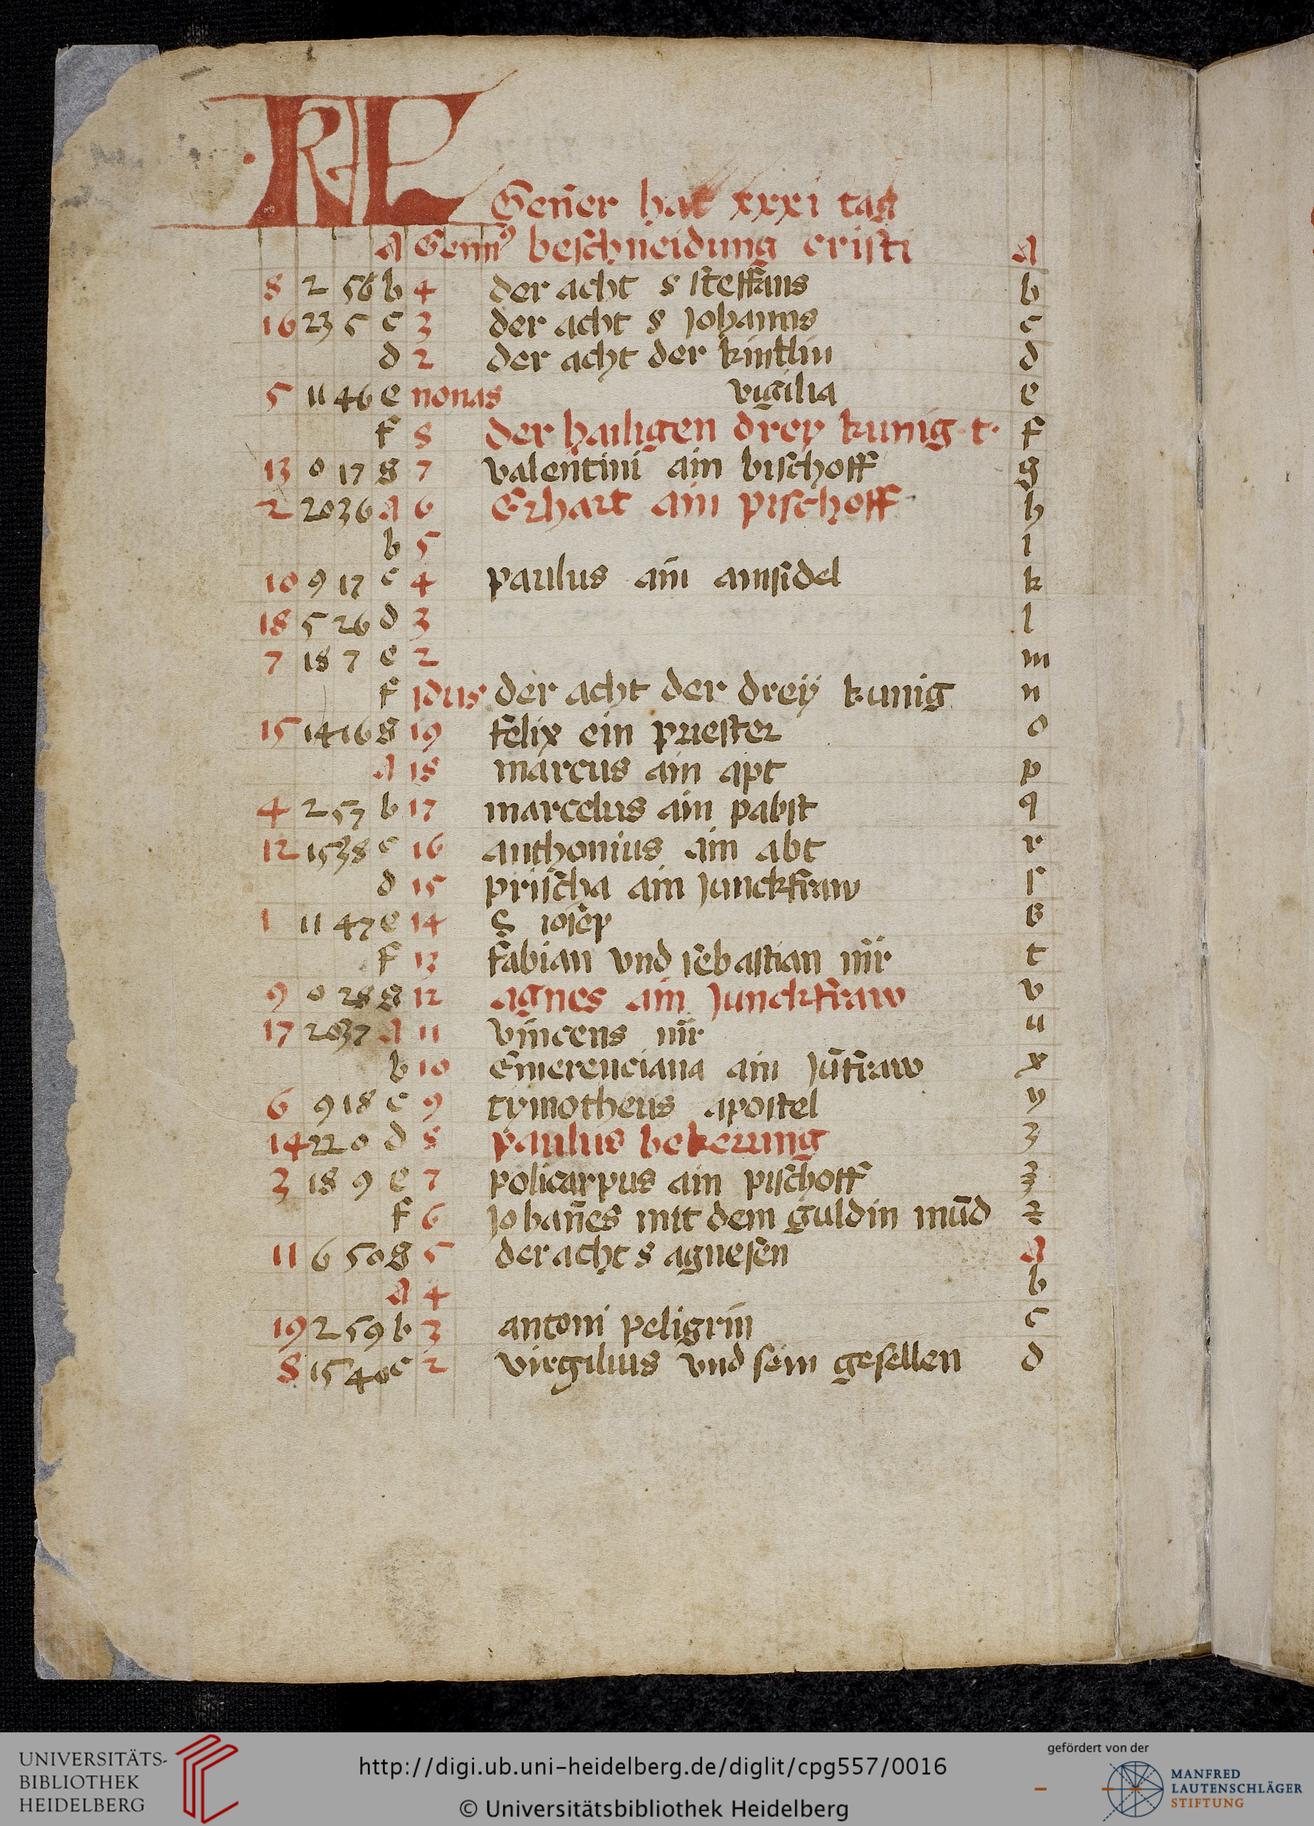 KL
Gen̄er hat xxxi tag
A Genn⁹ beschneidung cristi A
8 2 56 b 4 der acht s steffans b
16 23 5 c 3 der acht s johanns c
d 2 der acht der kintlin d
5 11 46 e nonas vigilia e
f 8 der hailigen drey kunig t. f
13 0 17 g 7 valentini ain bischoff g
2 20 36 A 6 Erhart ain pischoff h
b 5 i
10 9 17 c 4 paulus ain ainsidel k
18 5 26 d 3 l
7 18 7 e 2 m
f idus der acht der drey kunig n
15 14 16 g 19 felix ein priester o
A 18 marcus ain apt p
4 2 57 b 17 marcelus ain pabst q
12 15 38 c 16 anthonius ain abt r
d 15 prischa ain junckfraw s
1 11 47 e 14 S iosep
f 13 fabian vnd sebastian mr̄ t
9 0 28 g 12 agnes ain junckfraw v
17 20 37 A 11 vincens mr̄ u
b 10 Emerenciana ain jūfraw x
6 9 18 c 9 tymotheus apostel y
14 22 0 d 8 paulus bekerung z
3 18 9 e 7 policarpus ain pischoff
f 6 johan̄es mit dem guldin mūd
11 6 50 g 5 der acht s agnesen A
A 4 b
19 2 59 b 3 antoni peligrin c
8 15 40 c 2 virgilius vnd sein gesellen d
UNIVERSITÄTS-
BIBLIOTHEK
HEIDELBERG
http://digi.ub.uni-heidelberg.de/diglit/cpg557/0016
© Universitätsbibliothek Heidelberg
gefördert von der
MANFRED
LAUTENSCHLÄGER
STIFTUNG